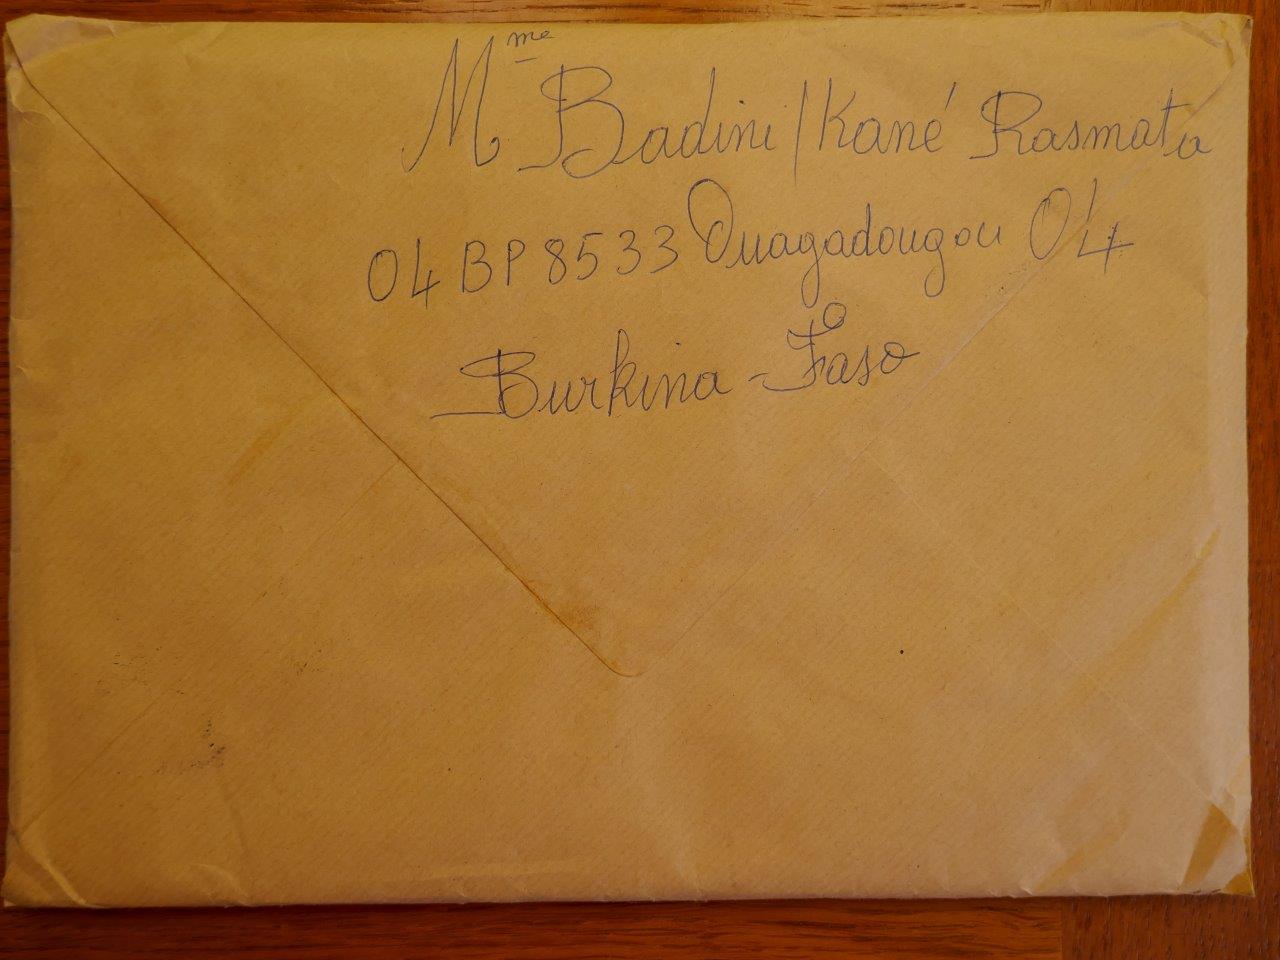 Mme Badini/Kané Rasmata
04 BP 8533 Ouagadougou 04
Burkina-Faso